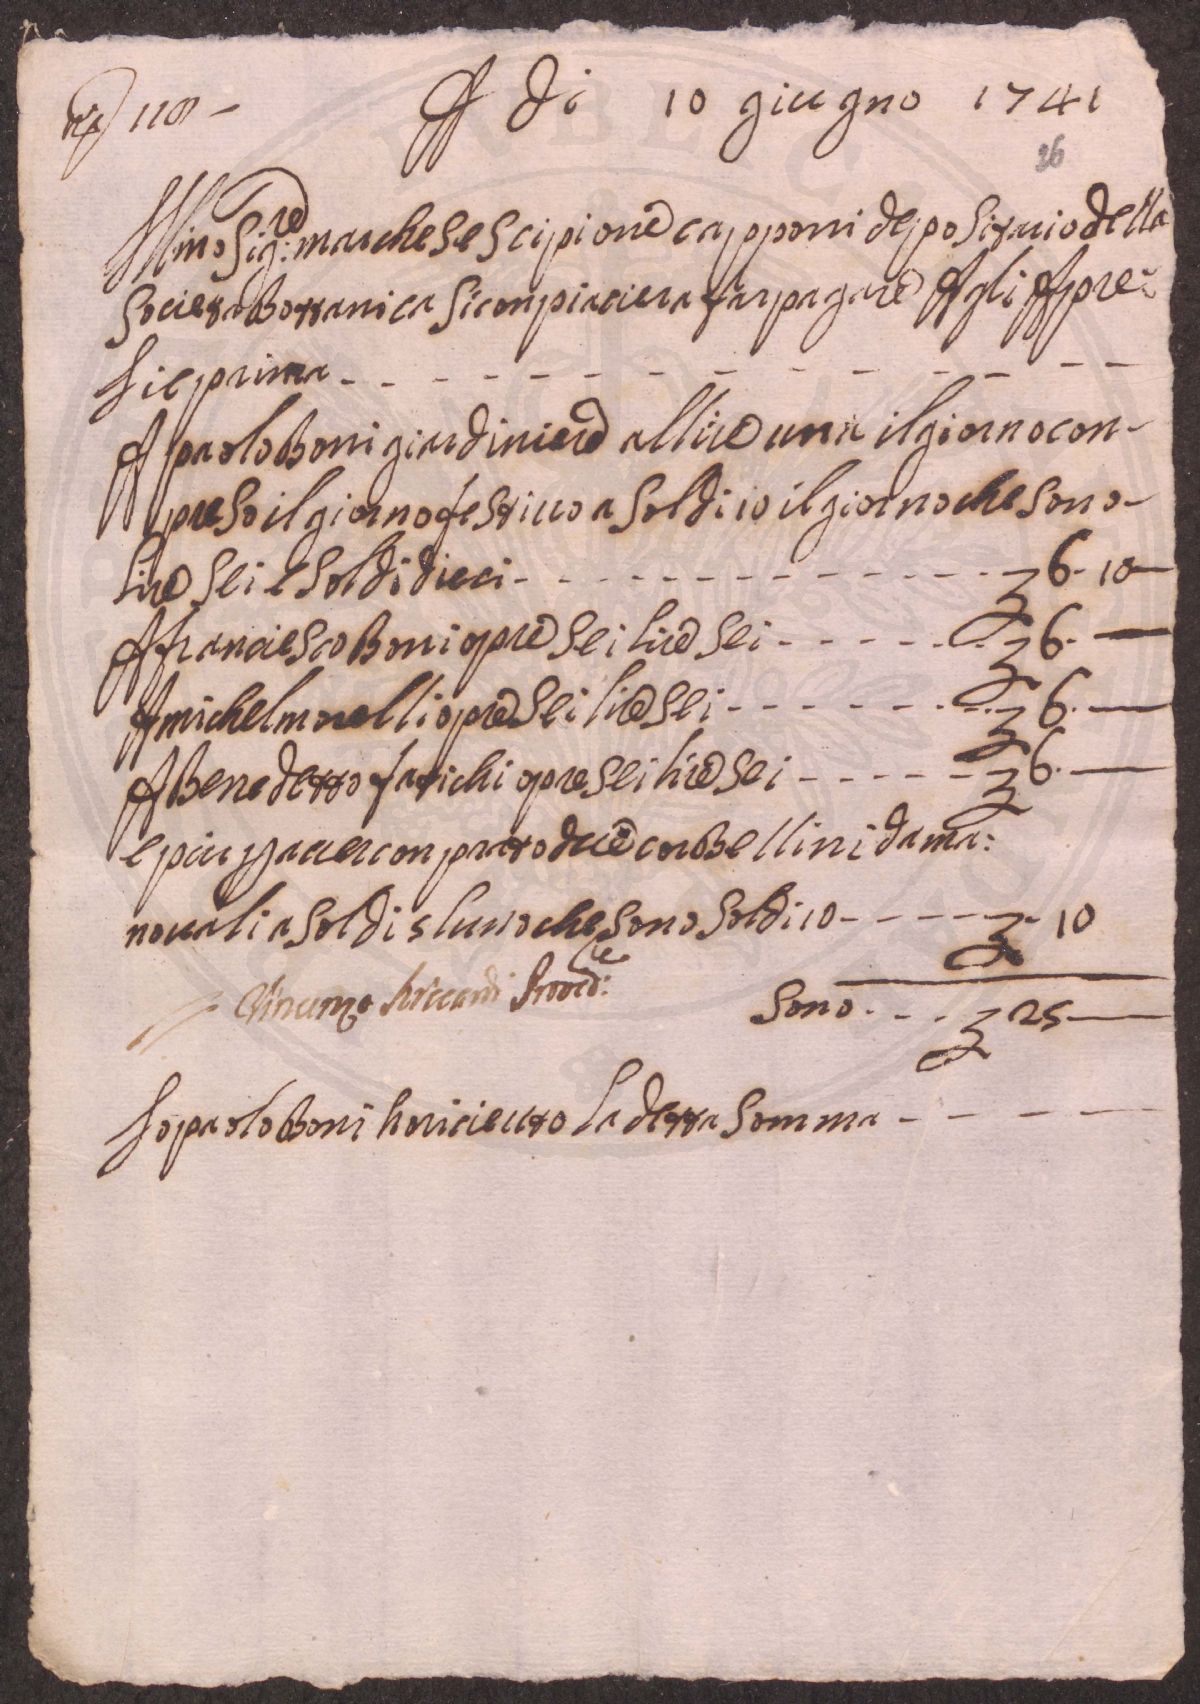 n° 118 -
A di 10 giugno 1741
26
Illmo Sig:re marchese Scipione capponi depositario della
Societa Bottanica Si conpiaciera far pagare Agli Apre:
si e prima - - - - - - - - - - - - -
A paolo Boni giardiniere a llire una il giorno con-
preso il giorno festiuo a Soldi 10 il giorno che sono-
lire Sei e Soldi dieci - - - - - - - - - - £ 6. 10 —
A franciesco Boni opre Sei lire Sei - - - - - - £ 6. —
A michel morelli opre Sei lire Sei - - - - - - - £ 6. —
A Benedetto fatichi opre Sei lire Sei - - - - - £ 6. —
e piu p auer conprato due corBellini da ma:
nouali a Soldi 5 luno che sono Soldi 10 - - - - - £ - 10
Vincenzo Riccardi Proved:re
Sono - - - £ 25 —
Io paolo Boni ho riceuto la detta Somma - - - -